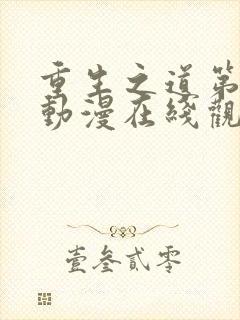 重生之道第
動漫在綫觀
壹叁貳零